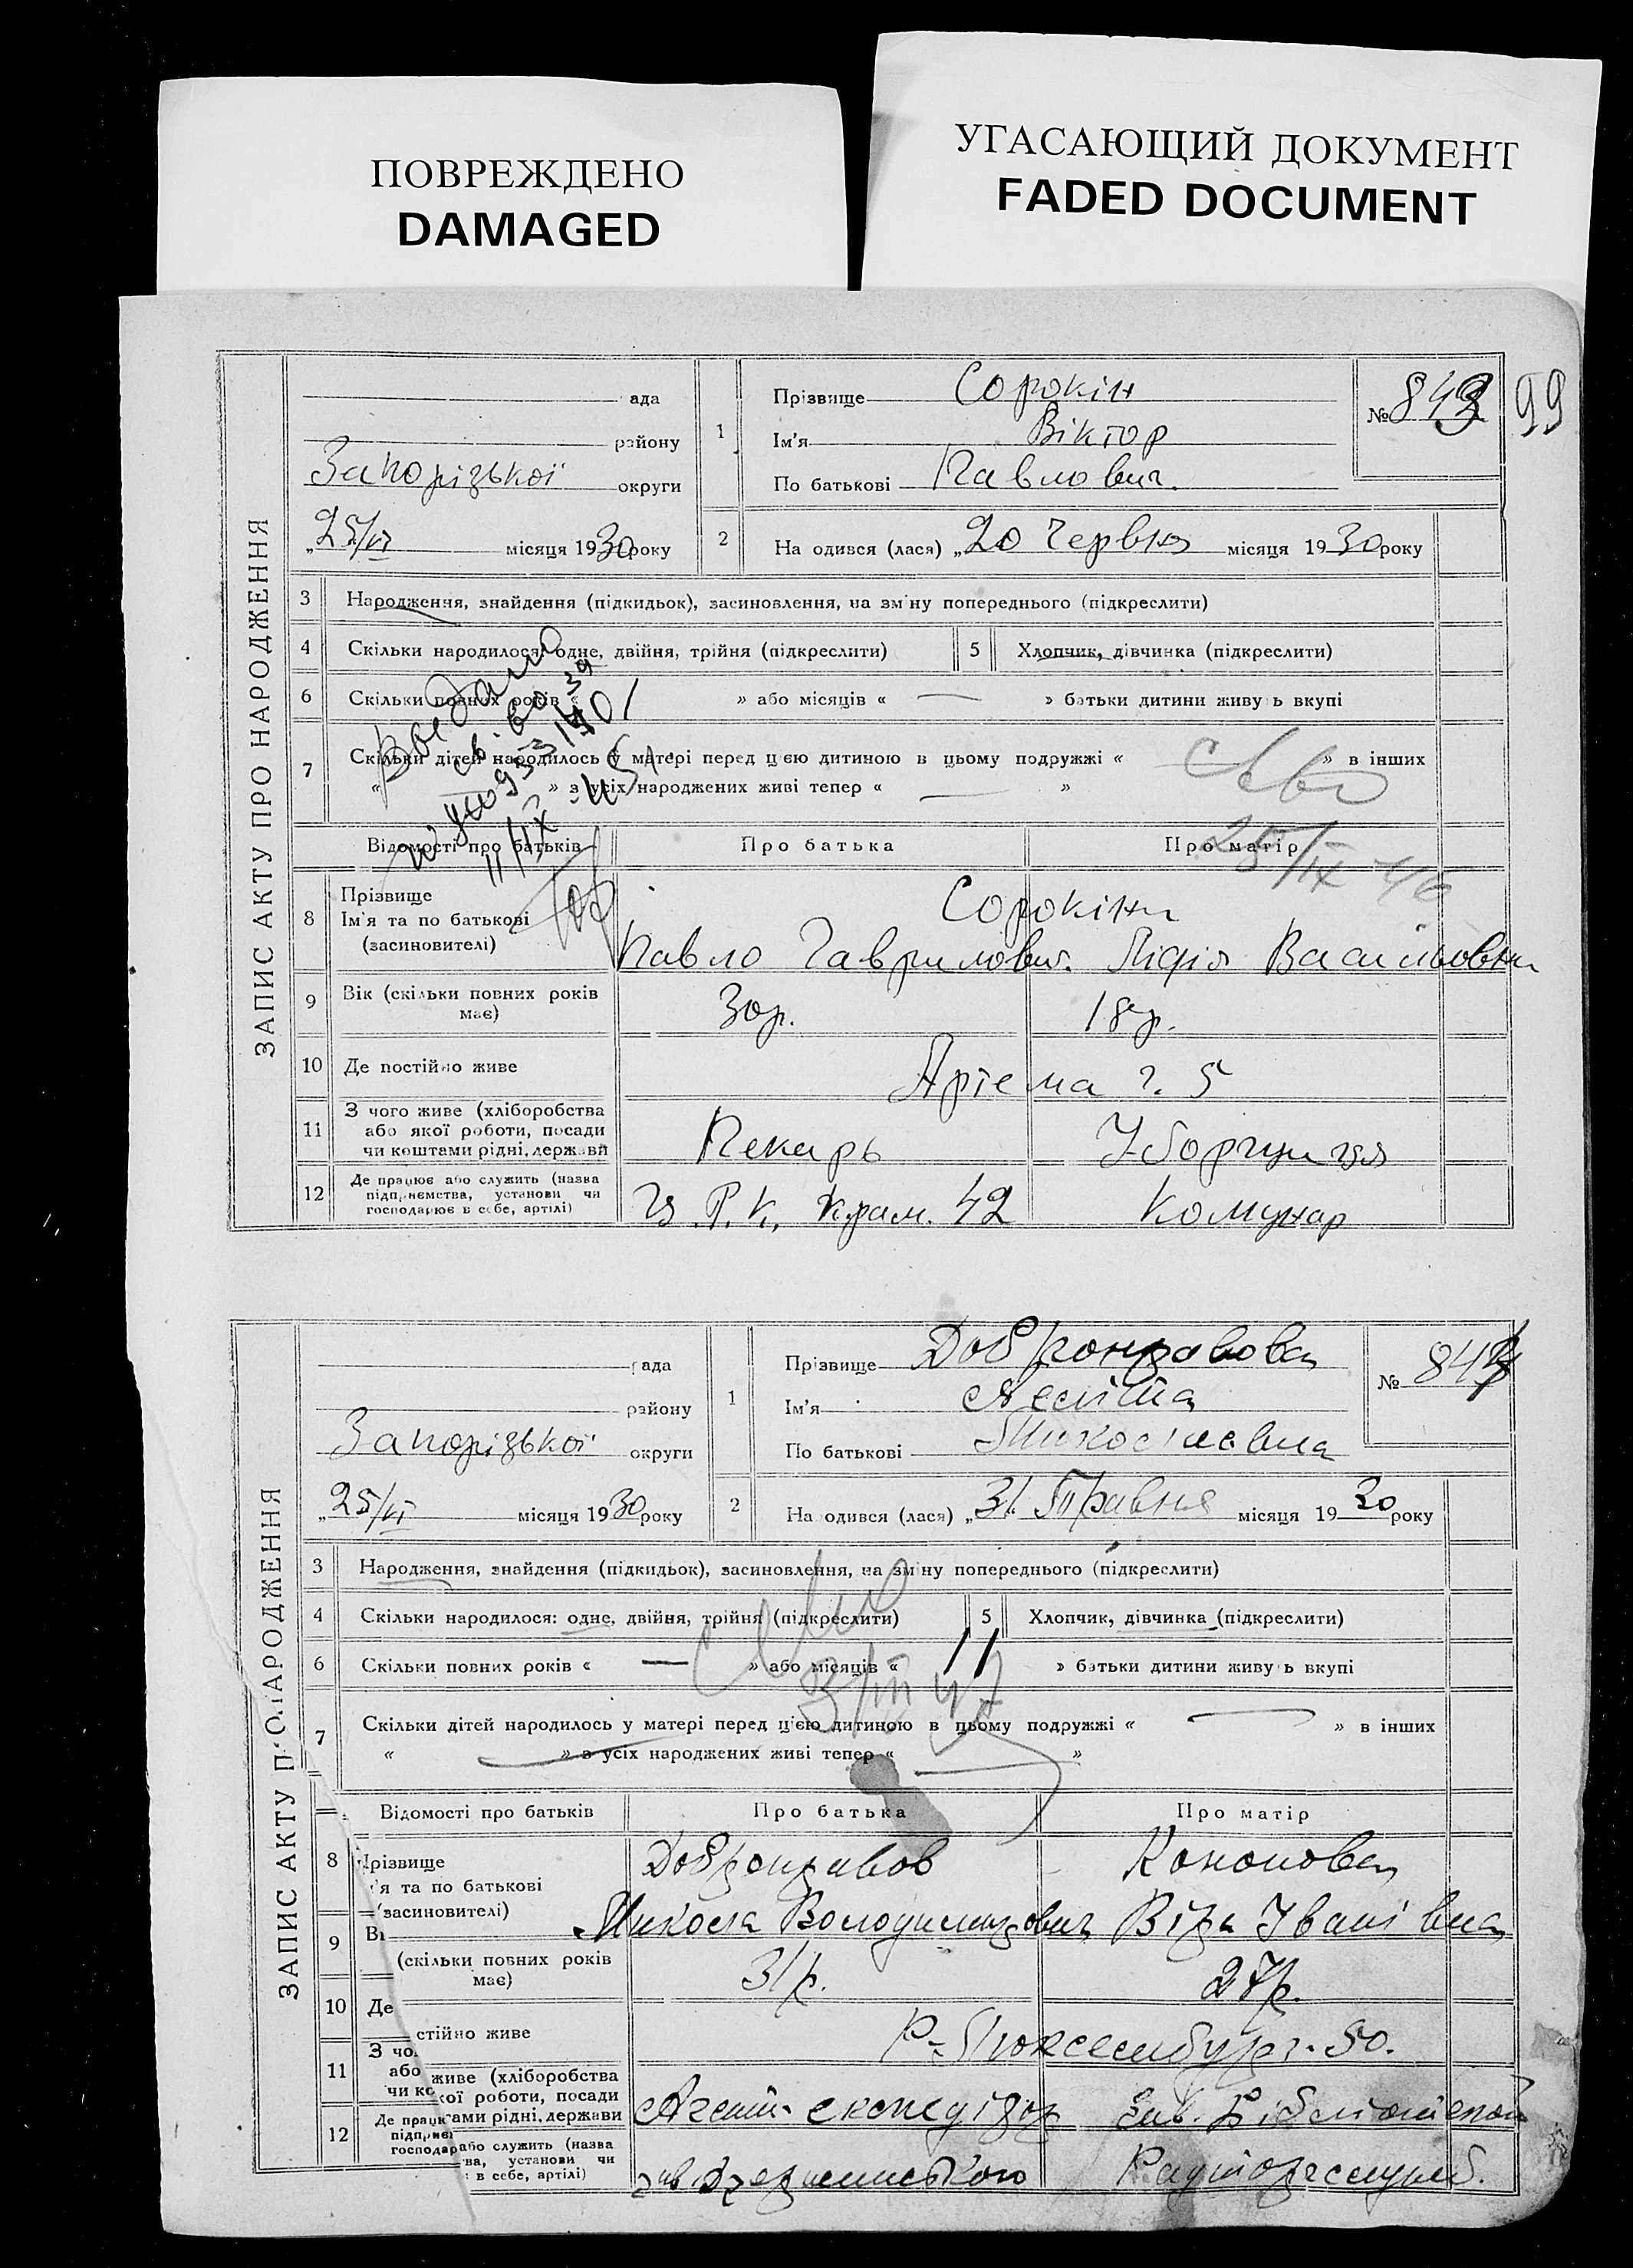 ПОВРЕЖДЕНО
DAMAGED
УГАСАЮЩИЙ ДОКУМЕНТ
FADED DOCUMENT
ЗАПИС АКТУ ПРО НАРОДЖЕННЯ
99
ада
району
Запорізької округи
„25/VI місяця 1930 року
1
Прізвище Сорокін
Ім'я Віктор
По батькові Павлович.
№ 843
2 На одився (лася) „20 Червня місяця 1930 року
3 Народження, знайдення (підкидьок), засиновлення, на зм ну попереднього (підкреслити)
4 Скільки народилося: одне, двійня, трійня (підкреслити) 5 Хлопчик, дівчинка (підкреслити)
6 Скільки повних років « » або місяців « — » батьки дитини живу ь вкупі
7 Скільки дітей народилось у матері перед цією дитиною в цьому подружжі « » в інших
« » з усіх народжених живі тепер « — »
11/IX
25/IX 46
Відомості про батьків Про батька Про матір
8 Прізвище
Ім'я та по батькові
(засиновителі)
Сорокіни
Павло Гаврилович. Лідія Васильовна
9 Вік (скільки повних років має) 30р. 18р.
10 Де постійно живе Артема г. 5
11 З чого живе (хліборобства
або якої роботи, посади
чи коштами рідні, держави
Пекарь Уборщиця
12 Де працює або служить (назва
підприємства, установи чи
господарює в себе, артілі)
Ц.Р.К. Крам. 42 Комунар
ЗАПИС АКТУ П О НАРОДЖЕННЯ
рада
району
Запорізької округи
„25/VI місяця 1930 року
1
Прізвище Добронравова
Ім'я Аеліта
По батькові Миколаєвна
№ 844
2 На одився (лася) „31 Травня місяця 1930 року
3 Народження, знайдення (підкидьок), засиновлення, на зм ну попереднього (підкреслити)
4 Скільки народилося: одне, двійня, трійня (підкреслити) 5 Хлопчик, дівчинка (підкреслити)
6 Скільки повних років « — » або місяців « 11 » батьки дитини живу ь вкупі
3/III 47
7 Скільки дітей народилось у матері перед цією дитиною в цьому подружжі « — » в інших
« — » з усіх народжених живі тепер « — »
Відомості про батьків Про батька Про матір
8 Прізвище
'я та по батькові
(засиновителі)
Добронравов Кононова
Микола Володимирович Віра Іванівна
9 Ві
(скільки повних років
має)
31р. 27р.
10 Де
стійно живе
Р-Люксембург. 50.
11 З чо
або живе (хліборобства
чи ко кої роботи, посади
тами рідні, держави
Агент-експедітор Зав. Бібліотекой
12 Де працю
підприє
господар або служить (назва
ва, установи чи
в себе, артілі)
Радторгслужб.